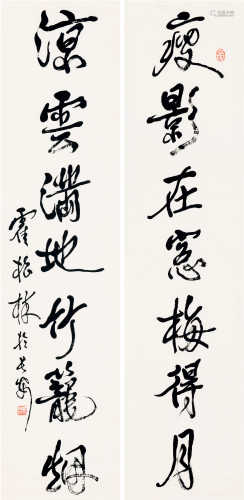 瘦影在窗梅得月
凉雲满地竹籠烟
霍松林於長安